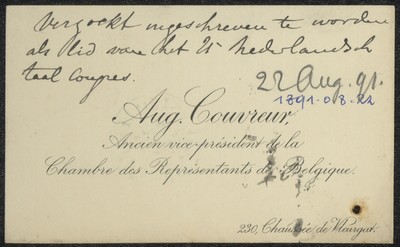 Verzoekt ingeschreven te worden
als lid van het 21e Nederlandsch
taal Congres.
22 Aug. 91.
1891.08.22
Aug. Couvreur,
Ancien vice-président de la
Chambre des Représentants de Belgique.
230, Chaussée de Vleurgat.